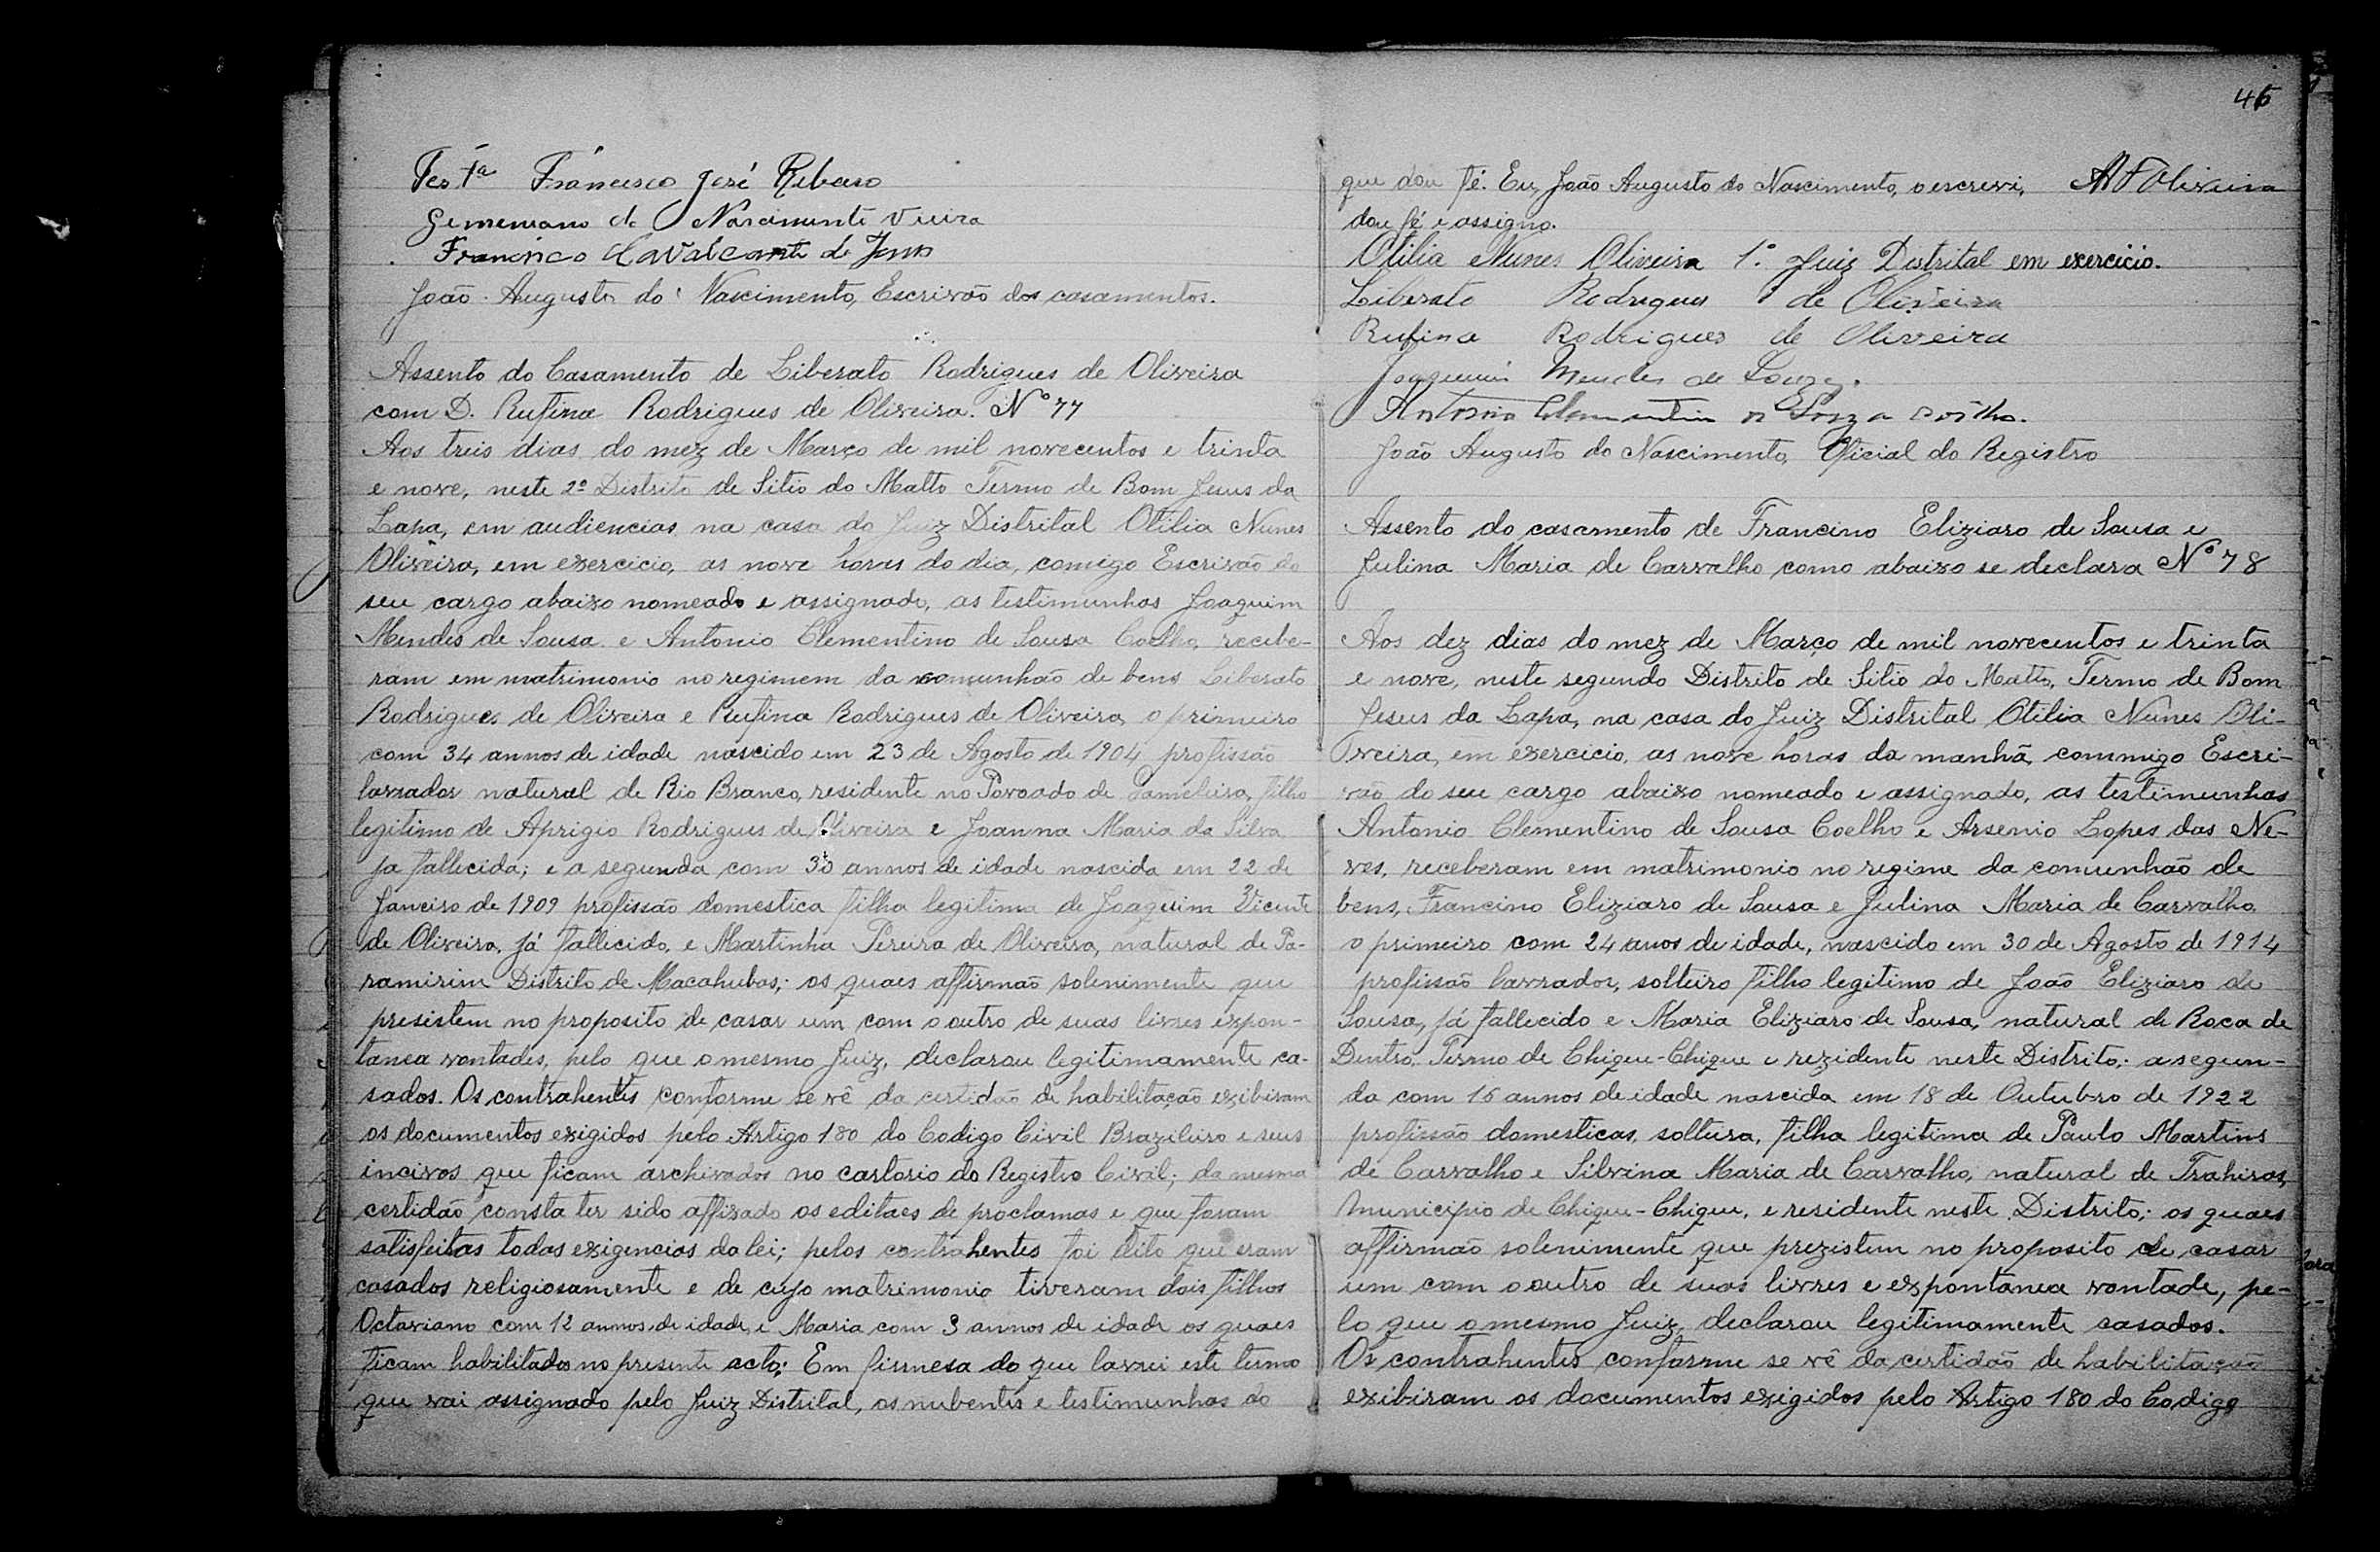 Testª Francisco José Ribeiro
Gememiano do Nascimento Vieira
Francisco Cavalcante de Jesus
João Augusto do Nascimento, Escrivão dos casamentos.
Assento do Casamento de Liberato Rodrigues de Oliveira
com D. Rufina Rodrigues de Oliveira. Nº 77
Aos treis dias do mez de Março de mil novecentos e trinta
e nove, neste 2º Distrito de Sitio do Matto Termo de Bom Jesus da
Lapa, em audiencias na casa do Juiz Distrital Otilia Nunes
Oliveira, em exercicio, as nove horas do dia, comigo Escrivão do
seu cargo abaixo nomeado e assignado, as testimunhas Joaquim
Mendes de Sousa e Antonio Clementino de Sousa Coelho, recebe-
ram em matrimonio no regimem da comunhão de bens Liberato
Rodrigues de Oliveira e Rufina Rodrigues de Oliveira, o primeiro
com 34 annos de idade nascido em 23 de Agosto de 1904 profissão
lavrador natural de Rio Branco, residente no Povoado de Gameleira, filho
legitimo de Aprigio Rodrigues de Oliveira e Joanna Maria da Silva
ja fallecida; e a segunda com 30 annos de idade nascida em 22 de
Janeiro de 1909 profissão domestica filha legitima de Joaquim Vicente
de Oliveira, já fallecido, e Martinha Pereira de Oliveira, natural de Pa-
ramirim Distrito de Macahubas; os quaes affirmão solenimente que
presistem no proposito de casar um com o outro de suas livres expon-
tanea vontades, pelo que o mesmo Juiz, declarou legitimamente ca-
sados. Os contrahentes conforme se vê da certidão de habilitação exibiram
os documentos exigidos pelo Artigo 180 do Codigo Civil Brazileiro e seus
incivos que ficam archivados no cartorio do Registro Civil; da mesma
certidão consta ter sido affixado os editaes de proclamas e que foram
satisfeitas todas exigencias da lei; pelos contrahentes foi dito que eram
casados religiosamente e de cujo matrimonio tiveram dois filhos
Octaviano com 12 annos de idade, e Maria com 3 annos de idade os quaes
ficam habilitados no presente acto; Em firmesa do que lavrei este termo
que vai assignado pelo Juiz Distrital, os nubentes e testimunhas do
46
que dou fé. Eu, João Augusto do Nascimento, o escrevi, Oliveira
dou fé e assigno.
Otilia Nunes Oliveira 1º Juiz Distrital em exercicio.
Liberato Rodrigues de Oliveira
Rufina Rodrigues de Oliveira
Joaquim Mendes de Souza.
Antonio Clementin de Souza Coêlho.
João Augusto do Nascimento, Oficial do Registro
Assento do casamento de Francino Eliziaro de Sousa e
Julina Maria de Carvalho como abaixo se declara Nº 78
Aos dez dias do mez de Março de mil novecentos e trinta
e nove, neste segundo Distrito de Sitio do Matto, Termo de Bom
Jesus da Lapa, na casa do Juiz Distrital Otilia Nunes Oli-
veira, em exercicio, as nove horas da manhã, commigo Escri-
vão do seu cargo abaixo nomeado e assignado, as testimunhas
Antonio Clementino de Sousa Coelho e Arsenio Lopes das Ne-
ves, receberam em matrimonio no regime da comunhão de
bens, Francino Eliziaro de Sousa e Julina Maria de Carvalho,
o primeiro com 24 anos de idade, nascido em 30 de Agosto de 1914
profissão lavrador, solteiro filho legitimo de João Eliziaro de
Sousa, já fallecido e Maria Eliziaro de Sousa, natural de Roca de
Dentro, Termo de Chique-Chique e rezidente neste Distrito; a segun-
da com 16 annos de idade nascida em 18 de Outubro de 1922
profissão domesticas, solteira, filha legitima de Paulo Martins
de Carvalho e Silvina Maria de Carvalho, natural de Trahiras,
Municipio de Chique-Chique, e residente neste Distrito; os quaes
affirmão solenimente que prezistem no proposito de casar
um com o outro de suas livres e expontanea vontade, pe-
lo que o mesmo Juiz, declarou legitimamente casados.
Os contrahentes conforme se vê da certidão de habilitação
exibiram os documentos exigidos pelo Artigo 180 do Codigo